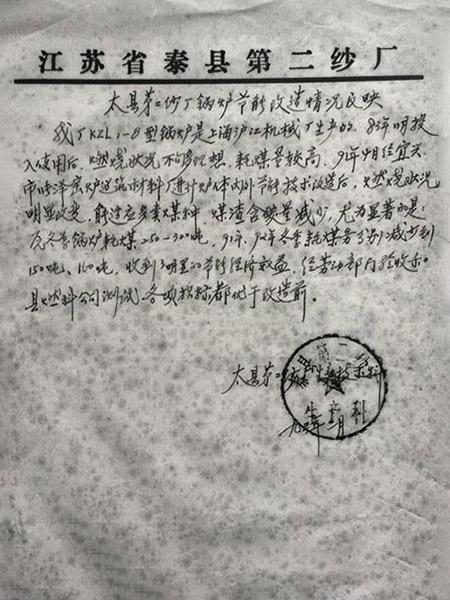 江苏省泰县第二纱厂
太县苐二纱厂锅炉节能改造情况反映
我厂KZL1-8型锅炉是上海沪江机械厂生产的。85年11月投
入使用后，燃烧状况不够理想、耗煤量较高、91年4月经宜兴
市 窑炉建筑材料厂进行炉体内外节能技术改造后，燃烧状况
明显改变，能适应多壹煤料，煤渣含碳量减少，尤为显著的是：
冬季锅炉耗煤250-300吨，91年、92年冬季耗煤量分别减少到
150吨、160吨，收到了明显的节能经济效益，经劳动部门验收和
县燃料公司测试、各项指标都优于改造前。
太县苐二
第二
生产科
九三年 月